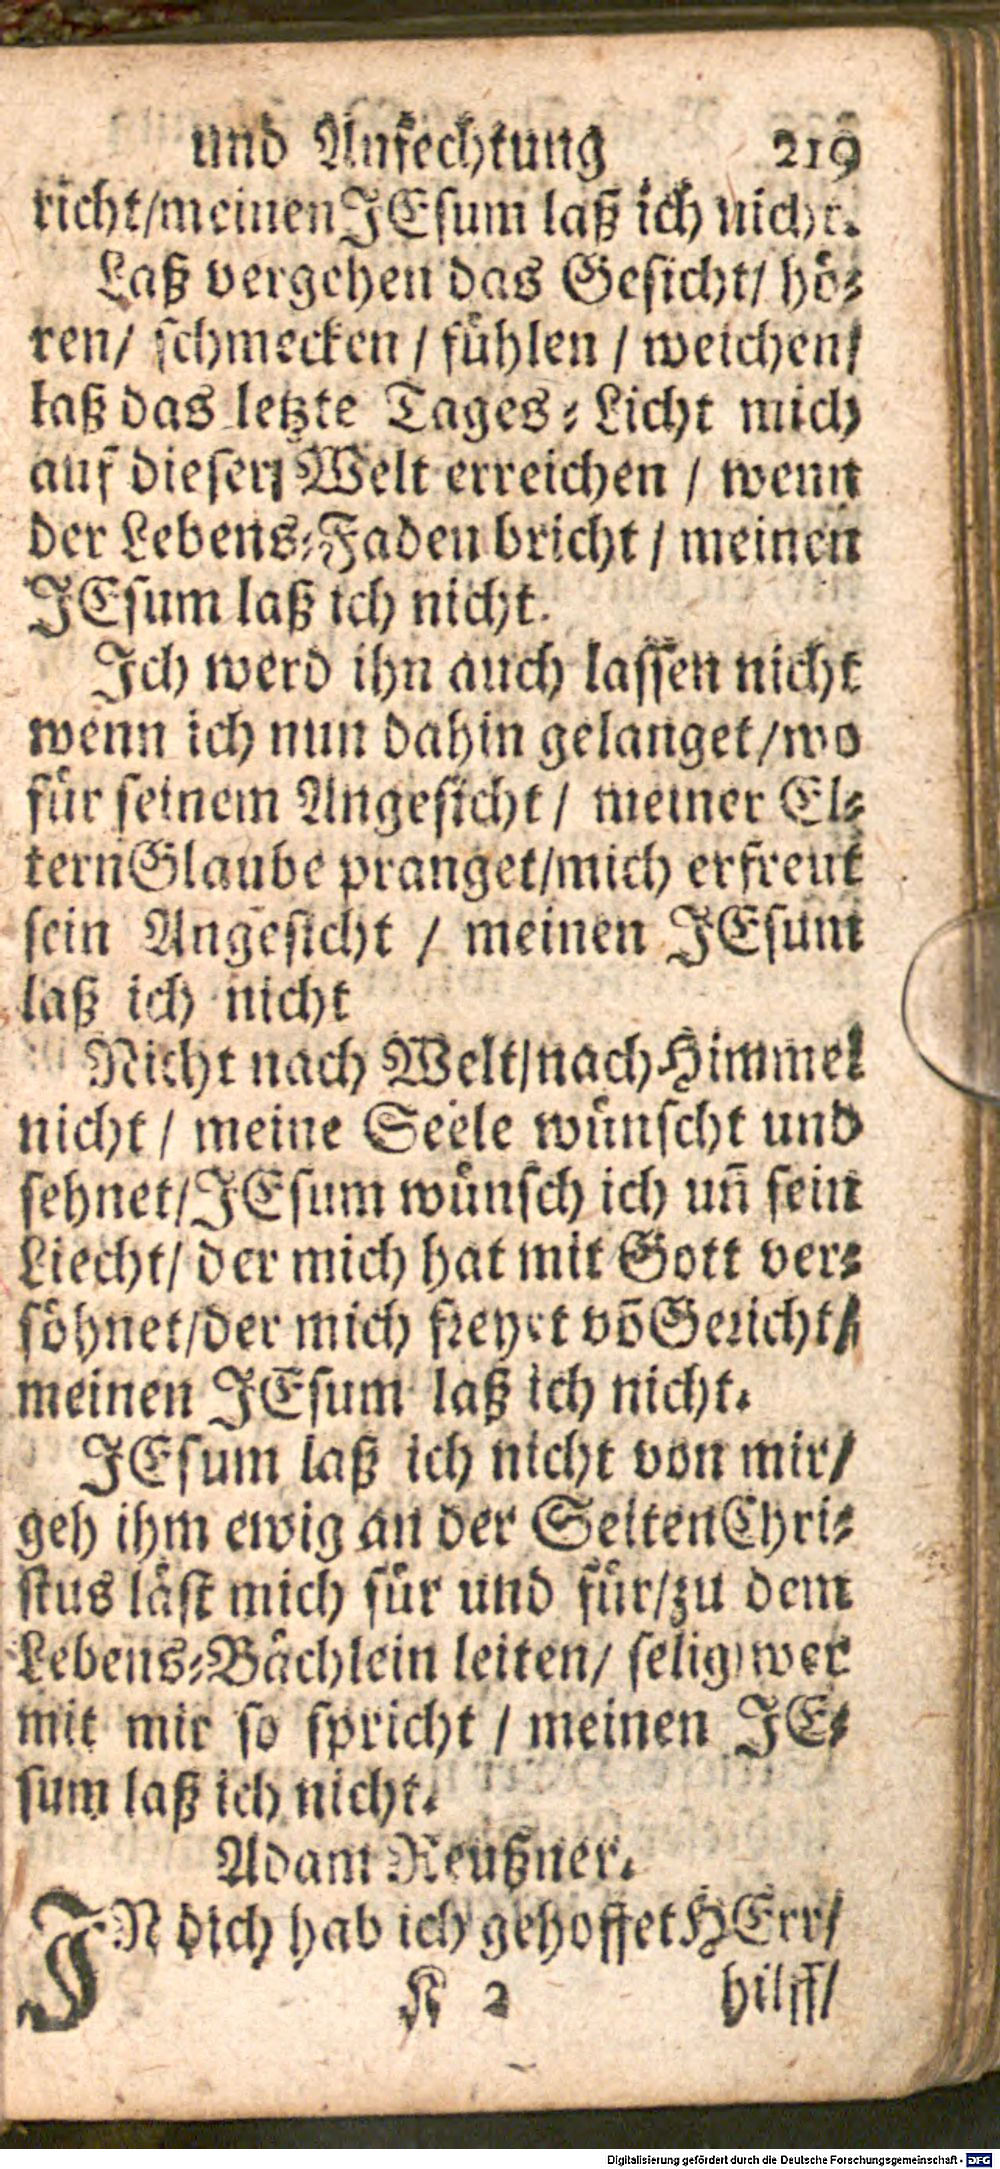 und Anfechtung 219
richt/meinen JEsum laß ich nicht.
Laß vergehen das Gesicht/ hö-
ren/ schmecken / fühlen / weichen/
laß das letzte Tages-Licht mich
auf dieser Welt erreichen / wenn
der Lebens-Faden bricht / meinen
JEsum laß ich nicht.
Ich werd ihn auch lassen nicht
wenn ich nun dahin gelanget/wo
für seinem Angesicht / meiner El-
tern Glaube pranget/mich erfreut
sein Angesicht / meinen JEsum
laß ich nicht
Nicht nach Welt/nach Himmel
nicht / meine Seele wünscht und
sehnet/JEsum wünsch ich uñ sein
Liecht/ der mich hat mit Gott ver-
söhnet/der mich freyet võ Gericht/
meinen JEsum laß ich nicht.
JEsum laß ich nicht von mir/
geh ihm ewig an der Seiten Chri-
stus läst mich für und für/zu dem
Lebens-Bächlein leiten/ selig wer
mit mir so spricht / meinen JE-
sum laß ich nicht.
Adam Reußner.
JN dich hab ich gehoffet HErr/
K 2 hilff/
Digitalisierung gefördert durch die Deutsche Forschungsgemeinschaft - DFG